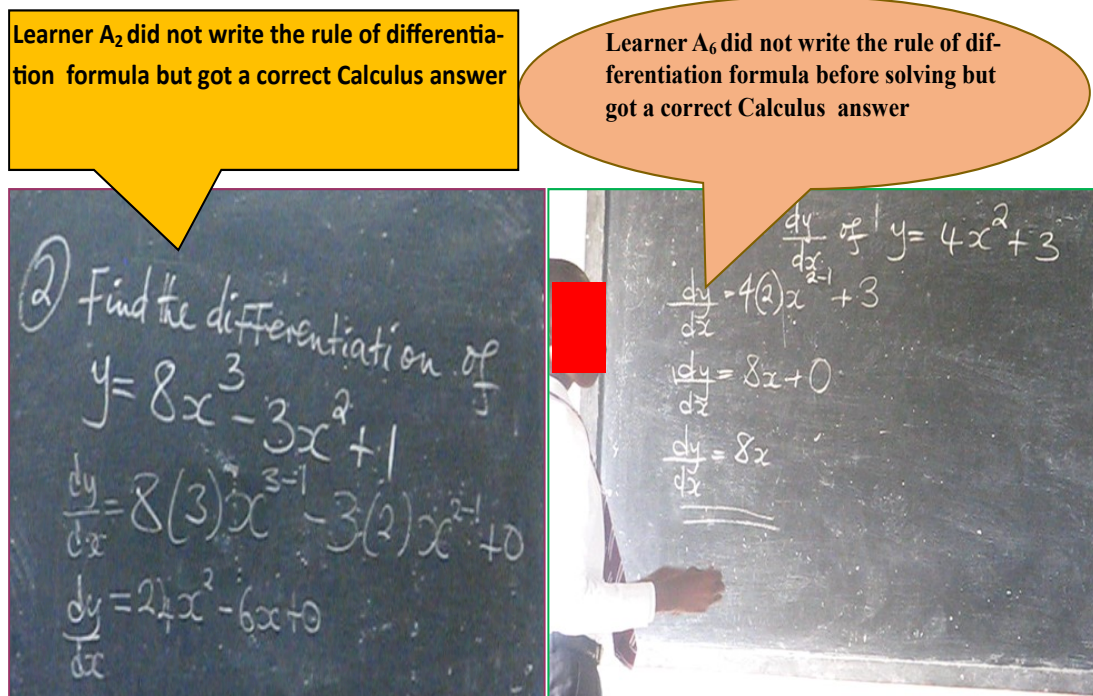 Learner A₂ did not write the rule of differentia-
tion formula but got a correct Calculus answer
Learner A₆ did not write the rule of dif-
ferentiation formula before solving but
got a correct Calculus answer
② Find the differentiation of
y = 8x³ - 3x² + 1
dy/dx = 8(3)x³⁻¹ - 3(2)x²⁻¹ + 0
dy/dx = 24x² - 6x + 0
dy/dx of y = 4x² + 3
dy/dx = 4(2)x²⁻¹ + 3
dy/dx = 8x + 0
dy/dx = 8x